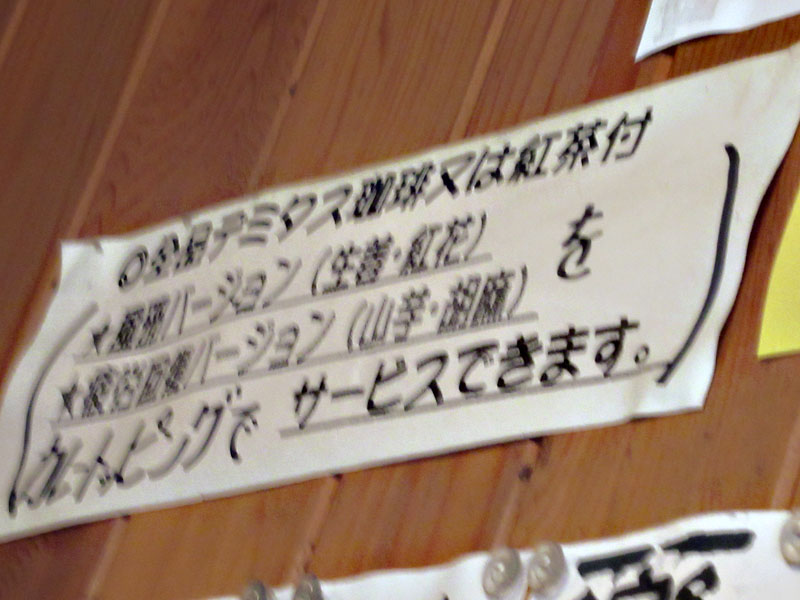 ◎全品デミタス珈琲又は紅茶付
★風邪バージョン(生姜・紅花)
を
★疲労回復バージョン(山芋・胡麻)
カレートッピングで サービスできます。